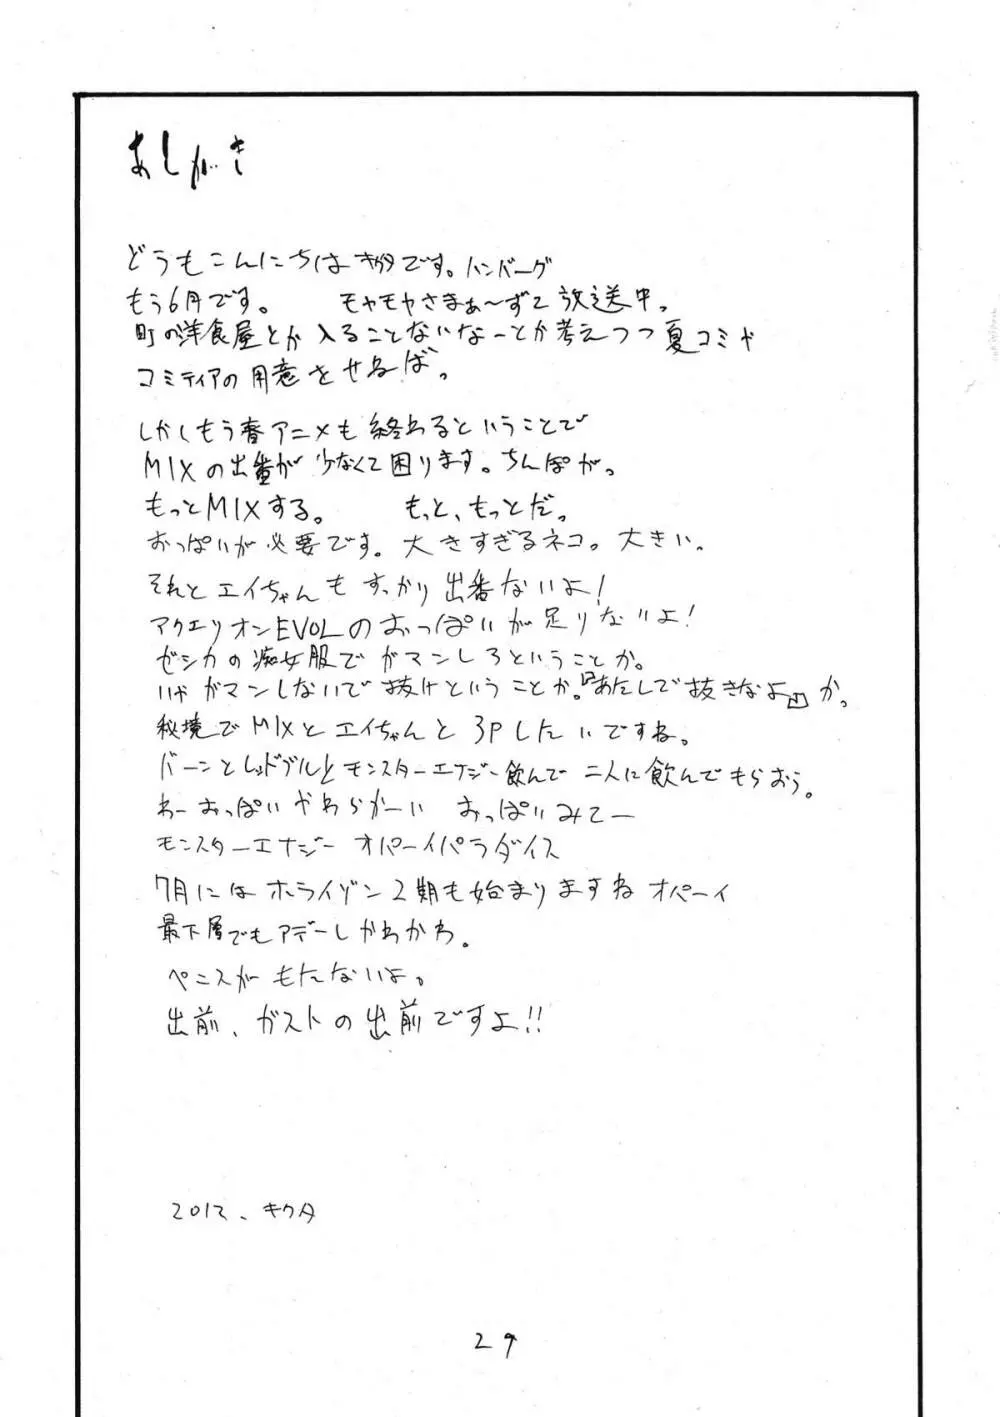 あしがき
どうもこんにちは キクタです。ハンバーグ
もう6月です。 モヤモヤさまぁ〜ず2 放送中。
町の洋食屋とか入ることないなーとか考えつつ夏コミや
コミティアの用意をせねば。
しかしもう春アニメも終わるということで
MIXの出番が少なくて困ります。ちんぽが。
もっとMIXする。 もっと、もっとだ。
おっぱいが必要です。大きすぎるネコ。大きい。
それとエイちゃんもすっかり出番ないよ!
アクエリオンEVOLのおっぱいが足りないよ!
ゼシカの痴女服でガマンしろということか。
いやガマンしないで抜けということか。『あたしで抜きなよ』か。
秘境でMIXとエイちゃんと3Pしたいですね。
バーンとレッドブルとモンスターエナジー飲んで二人に飲んでもらおう。
わーおっぱいやわらかーい おっぱいみてー
モンスターエナジー オパーイパラダイス
7月にはホライゾン2期も始まりますねオパーイ
最下層でもアデーレかわかわ。
ペニスがもたないよ。
出前、ガストの出前ですよ!!
2012、キクタ
29